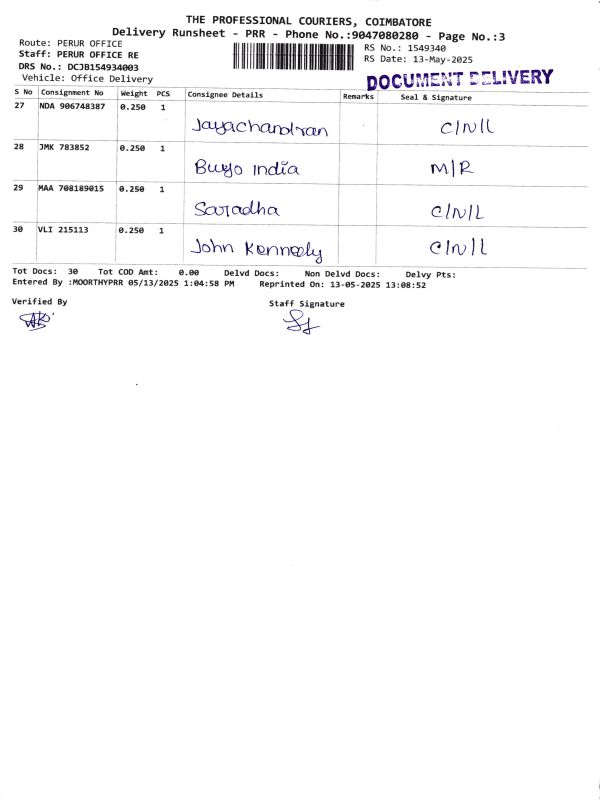 THE PROFESSIONAL COURIERS, COIMBATORE
Delivery Runsheet - PRR - Phone No.:9047080280 - Page No.:3
Route: PERUR OFFICE
Staff: PERUR OFFICE RE
DRS No.: DCJB154934003
Vehicle: Office Delivery
RS No.: 1549340
RS Date: 13-May-2025
DOCUMENT DELIVERY
S No Consignment No Weight PCS Consignee Details Remarks Seal & Signature
27 NDA 906748387 0.250 1 Jayachandran C/N/L
28 JMK 783852 0.250 1 India M/R
29 MAA 708189015 0.250 1 Saradha C/N/L
30 VLI 215113 0.250 1 John Kennedy C/N/L
Tot Docs: 30 Tot COD Amt: 0.00 Delvd Docs: Non Delvd Docs: Delvy Pts:
Entered By :MOORTHYPRR 05/13/2025 1:04:58 PM Reprinted On: 13-05-2025 13:08:52
Verified By Staff Signature